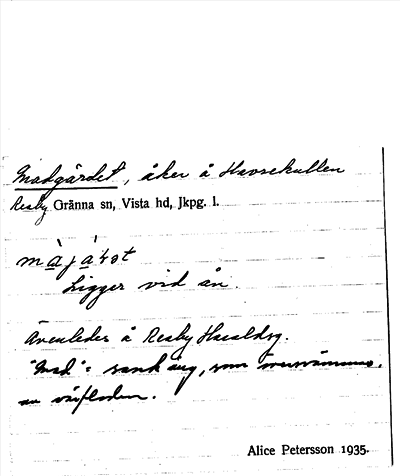 Madgärdet, åker å Havsekullen
Reaby Gränna sn, Vista hd, Jkpg. l.
Ligger vid ån.
Ävenledes å Reaby Haraldsg.
"Mad": sank äng, som översvämmas
av vårfloden.
Alice Petersson 1935.